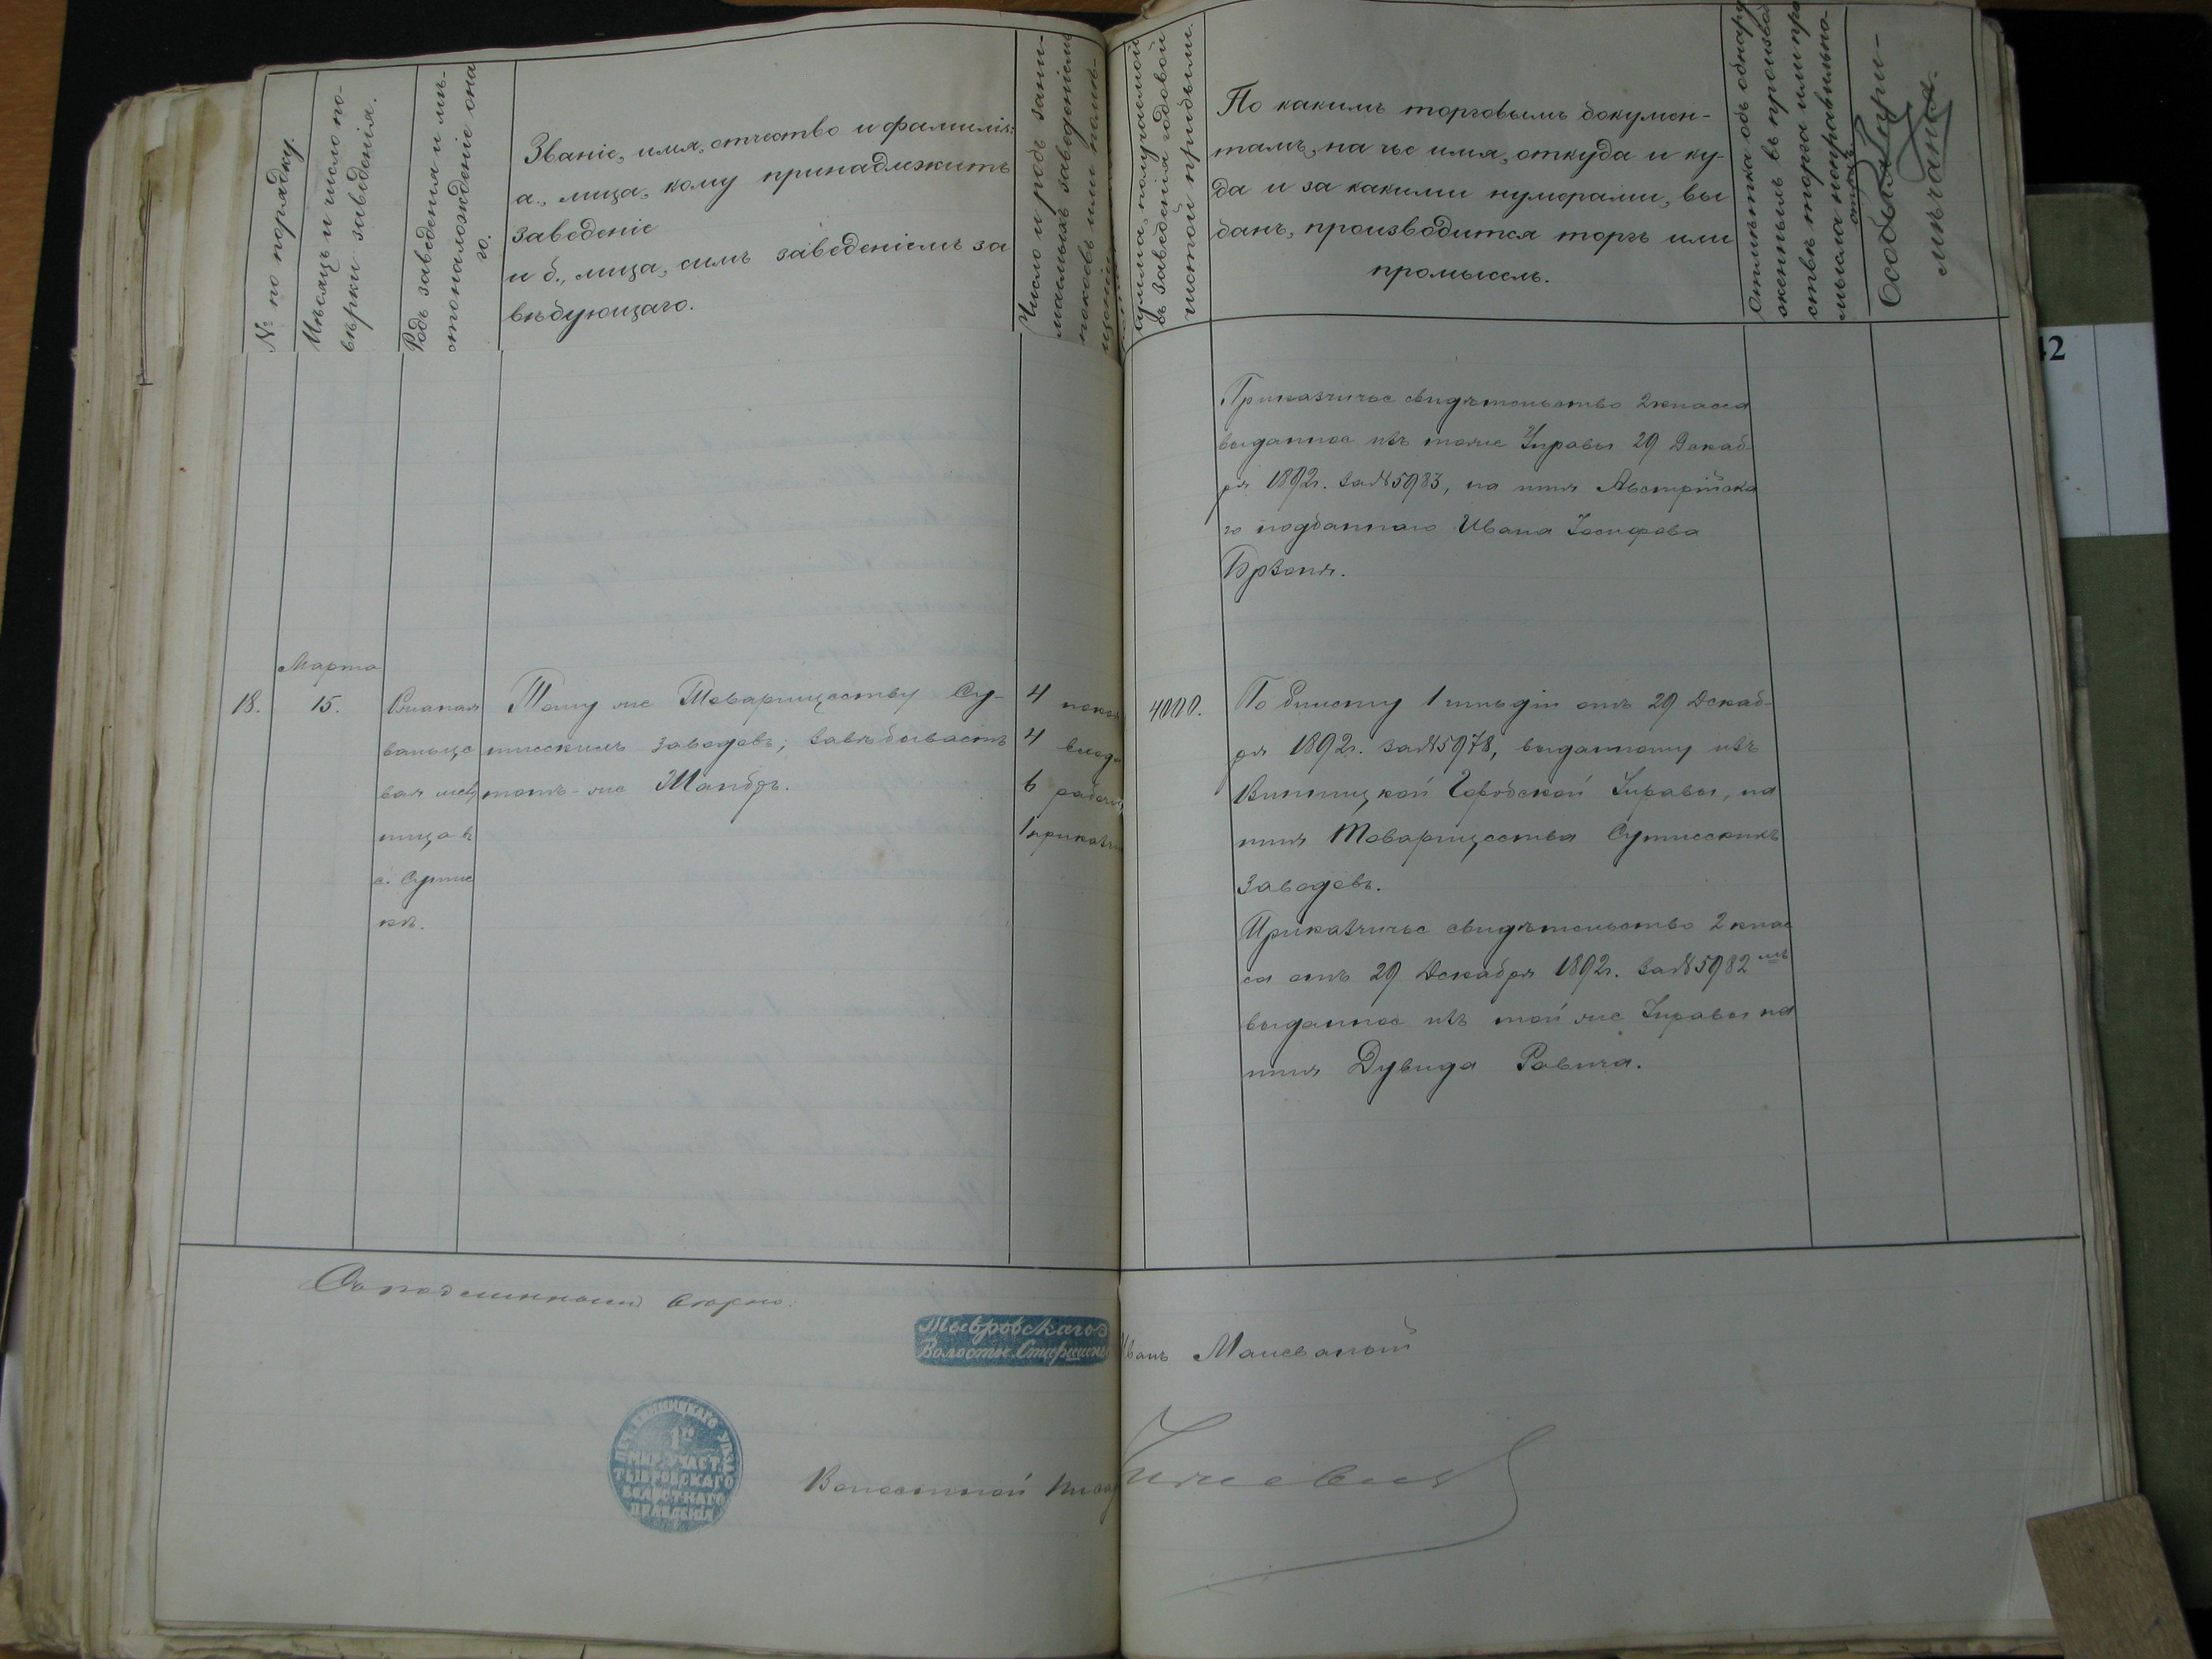 № по порядку.
Мѣсяцъ и число по-
вѣрки заведенія.
Родъ заведенія и мѣ-
стонахожденіе она
го.
Званіе, имя, отчество и фамилія:
а., лица, кому принадлежитъ
заведеніе
и б., лица, симъ заведеніемъ за
вѣдующаго.
Число и родъ зани-
маемыхъ заведеніемъ
покоевъ или помѣ-
Сумма, получаемой
въ заведенія годовой
чистой прибыли.
По какимъ торговымъ докумен-
тамъ, на чье имя, откуда и ку-
да и за какими нумерами, вы
данъ, производится торгъ или
промыселъ.
Отмѣтка объ обнару
женныхъ въ производ
ствѣ торга или про
мысла неправильно-
стяхъ
Особыя при-
мѣчанія.
Приказчичье свидѣтельство 2 класса
выданное изъ тойже Управы 29 Декаб-
ря 1892 г. за № 5983, на имя Австрійска
го подданнаго Ивана Іосифова
Брзоня.
Марта
18.
15.
вальце
вая мель
ница въ
с. Сутис
кѣ.
Тому же Товариществу Су-
тисскихъ заводовъ; завѣдываетъ
тотъ-же Шандръ.
4 поко
4 входа
6 рабочих
1 приказчи
4000.
По билету 1 гильдіи отъ 29 Декаб-
ря 1892 г. за № 5978, выданному изъ
Винницкой Городской Управы, на
имя Товарищества Сутисскихъ
Заводовъ.
Приказчичье свидѣтельство 2 клас
са отъ 29 Декабря 1892 г. за № 5982 мъ
выданное изъ той же Управы на
имя Дувида Равича.
Съ подлиннымъ вѣрно:
Тывровскаго
Волостн. Старшины
Иванъ
ПЕЧ. ВИННИЦКАГО УѢЗДА
1го
МИР. УЧАСТ.
ТЫВРОВСКАГО
ВОЛОСТНАГО
ПРАВЛЕНІЯ
Волостной Писарь